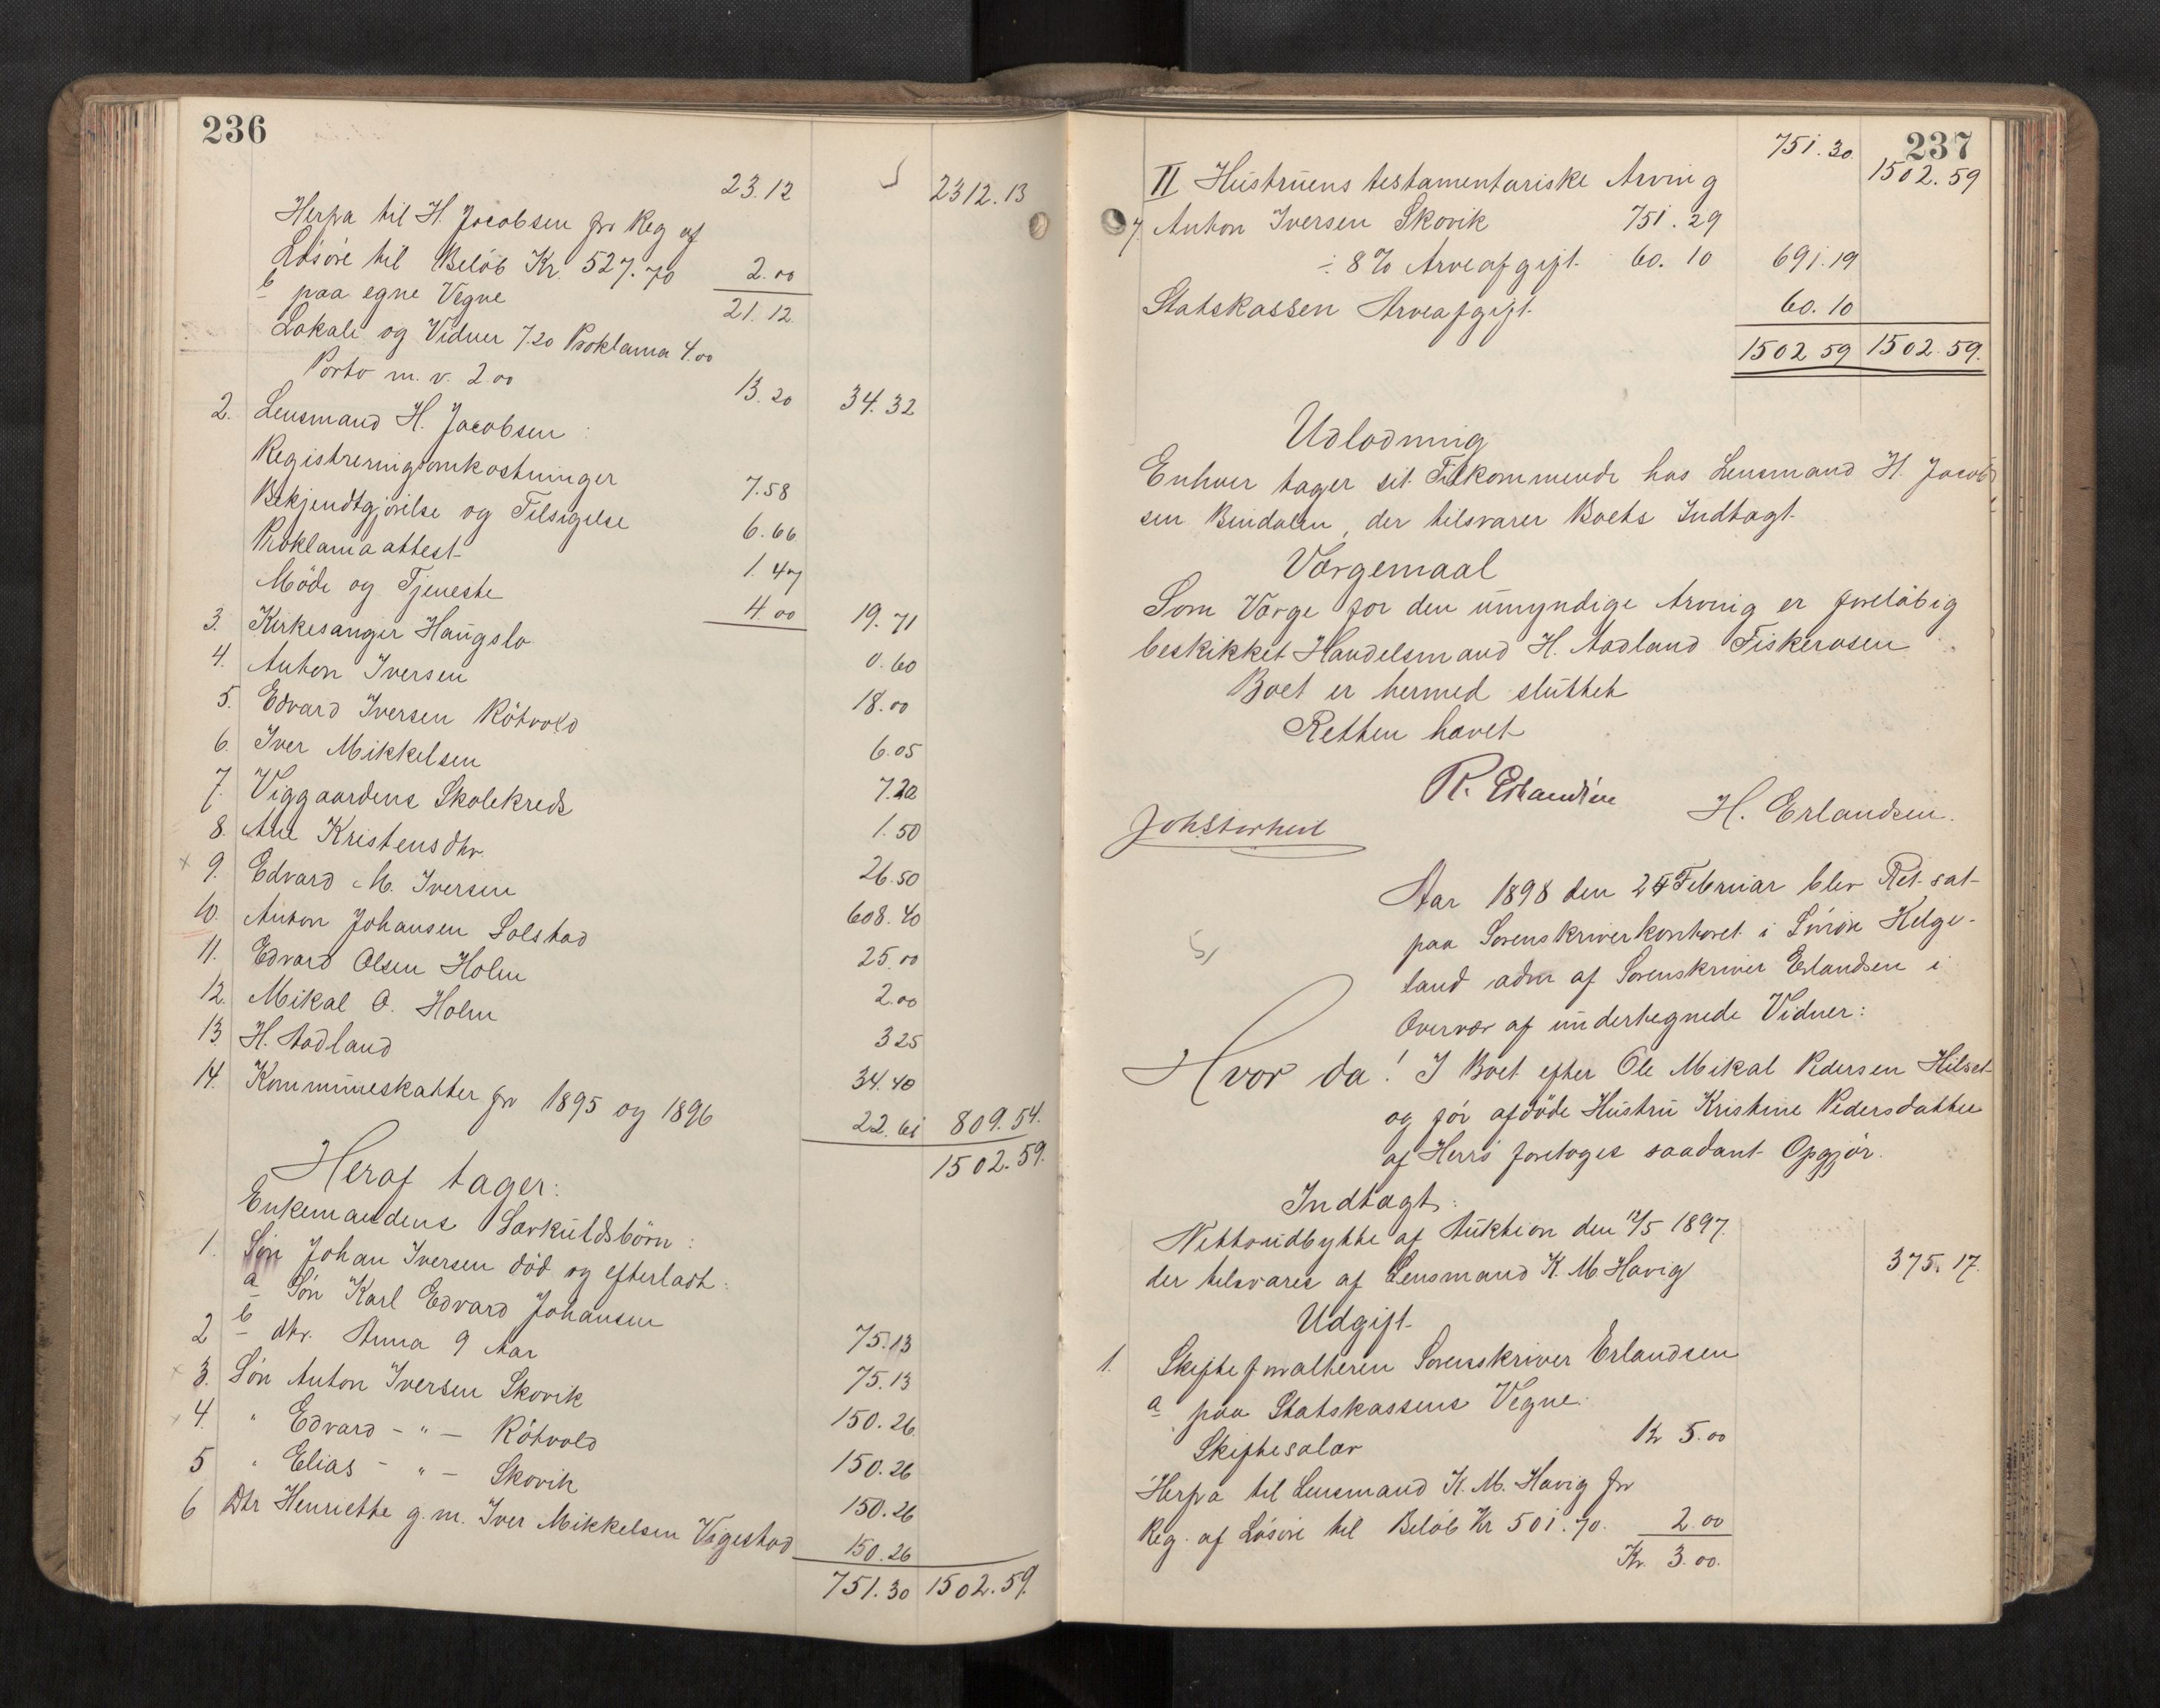 236
23.12 2312.13
Herfra til H. Jacobsen for Reg af
Løsøre til Beløb Kr. 527.70 2.00
21.12
b paa egne Vegne
Lokale og Vidner 7.20 Proklama 4.00
Porto m. v. 2.00 13.20 34.32
2. Lensmand H. Jacobsen:
Registreringsomkostninger 7.58
Bekjendtgjørelse og Tilsigelse 6.66
Proklama attest 1.47
Møde og Tjeneste 4.00 19.71
3. Kirkesanger Haugslo 0.60
4. Anton Iversen 18.00
5. Edvard Iversen Røtvold 6.05
6. Iver Mikkelsen 7.20
7. Viggaardens Skolekreds 1.50
8. Ane Kristensdtr. 26.50
9. Edvard M. Iversen 608.40
10. Anton Johansen Solstad 25.00
11. Edvard Olsen Holm 2.00
12. Mikal O. Holm 3 25
13. H. Aadland 34.40
14. Kommuneskatter for 1895 og 1896 22.61 809.54.
1502.59.
Heraf tager:
Enkemandens Særkuldsbørn:
1. Søn Johan Iversen død og efterladt:
a Søn Karl Edvard Johansen 75.13
2 b dtr. Anna 9 Aar 75.13
3. Søn Anton Iversen Skovik 150.26
4. " Edvard - " - Røtvold 150.26
5 " Elias - " - Skovik 150.26
6 Dtr Henriette g. m. Iver Mikkelsen Vigestad 150.26
751.30 1502.59.
237
751.30 1502.59
II Hustruens testamentariske Arving
7. Anton Iversen Skovik 751.29
÷ 8% Arveafgift 60.10 691.19
Statskassen Arveafgift 60.10
1502 59 1502.59.
Udlodning
Enhver tager sit Tilkommende hos Lensmand H. Jacob
sen Bindalen, der tilsvarer Boets Indtægt
Værgemaal
Som Værge for den umyndige Arving er foreløbig
beskikket Handelsmand H. Aadland Fiskerosen
Boet er hermed sluttet
Retten hævet
R. Erlandsen H. Erlandsen.
Aar 1898 den 24 Februar blev Ret sat
paa Sorenskriverkontoret i Søndre Helge-
land adm af Sorenskriver Erlandsen i
Overvær af undertegnede Vidner:
Hvor da! I Boet efter Ole Mikal Pedersen Hilset
og før afdøde Hustru Kristine Pedersdatter
af Herrø foretoges saadant Opgjør.
Indtægt:
Nettoudbytte af Auktion den 12/5 1897.
der tilsvares af Lensmand K. M Havig 375.17.
Udgift
1. Skifteforvalteren Sorenskriver Erlandsen
a paa Statskassens Vegne:
Skiftesalær Kr 5.00
Herfra til Lensmand K. M. Havig for
Reg. af Løsøre til Beløb Kr 501.70. 2.00
Kr. 3.00.